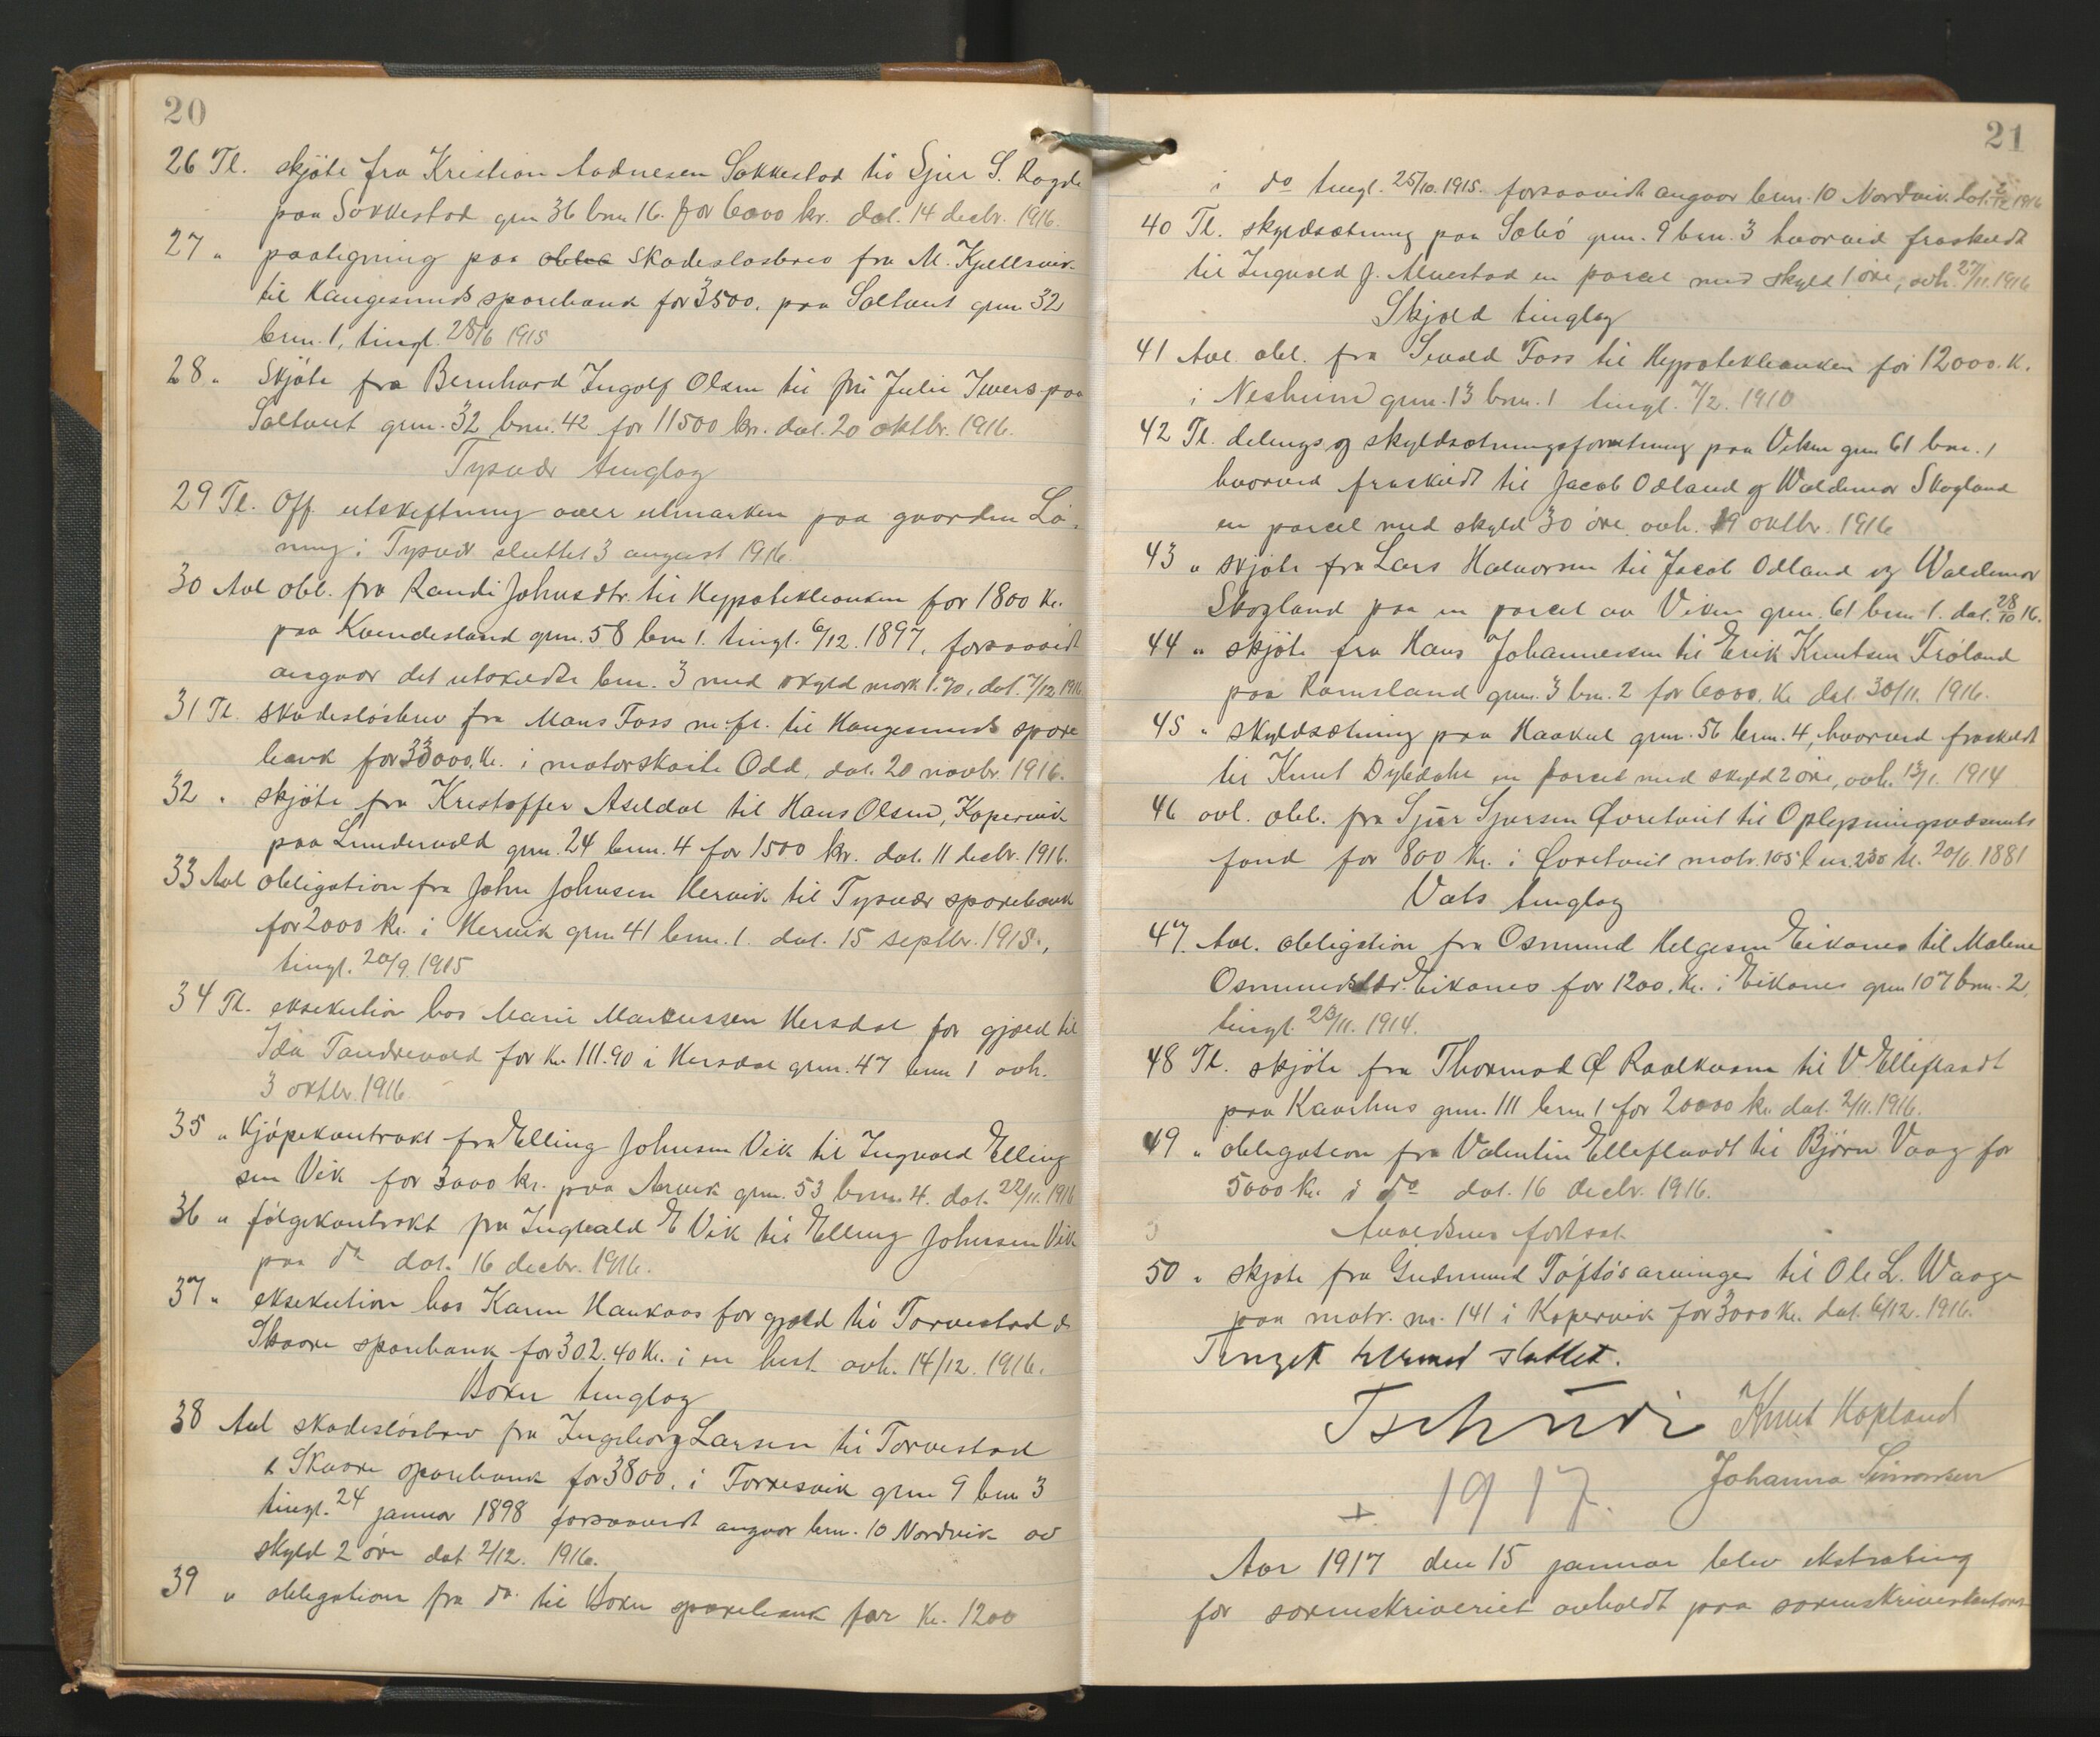 20
26 Tl. skjöte fra Kristian Aadnesen Sakkestad til Sjur S. Rogde
paa Sakkestad grn. 36 brn. 16. for 6000 kr. dat. 14 decbr. 1916.
27 " paategning paa skadeslösbrev fra M. Kjellsvik
til Haugesunds sparebank for 3500. paa Saltveit grn 32
brn. 1, tingl. 28/6 1915
28 " Skjöte fra Bernhard Ingolf Olsen til Julie Iwers paa
Saltveit grn. 32 brn. 42 for 11500 kr. dat. 20 oktbr. 1916.
Tysvær tinglag
29 Tl. Off. utskiftning over utmarken paa gaarden Lö-
ning i Tysvær sluttet 3 august 1916.
30 Avl obl. fra Randi Johnsdtr. til Hypotekbanken for 1800 kr.
paa Kvendesland grn. 58 brn 1. tingl. 6/12. 1897, forsaavidt
angaar det utskildte brn. 3 med skyld mark 1.70, dat. 7/12 1916
31 Tl. skadeslösbrev fra Mans Foss m. fl. til Haugesunds spare
bank for 33000 kr. i motorskøite Odd, dat. 20 novbr. 1916.
32 " skjöte fra Kristoffer Aseldal til Hans Olsen, Kopervik
paa Lundevold grn. 24 brn. 4 for 1500 kr. dat. 11 decbr. 1916.
33 Avl obligation fra John Johnsen Hervik til Tysvær sparebank
for 2000 kr. i Hervik grn 41 brn. 1. dat. 15 septbr. 1915.,
tingl. 20/9. 1915
34 Tl. eksekution hos Marie Markussen Hersdal for gjæld til
Ida Tandrevold for kr. 111.90 i Hersdal grn. 47 brn 1 avh.
3 oktbr. 1916.
35 " kjöpekontrakt fra Elling Johnsen Vik til Ingvald Elling
sen Vik for 3000 kr. paa Arvik grn. 53 brn. 4. dat. 22/11. 1916
36 " fölgekontrakt fra Ingvald E Vik til Elling Johnsen Vik
paa do dat. 16 decbr. 1916.
37 " eksekution hos Karen Haukaas for gjæld til Torvestad &
Skaare sparebank for 302.40 kr. i en hest avh. 14/12. 1916.
Bokn tinglag
38 Avl skadeslösbrev fra Ingeborg Larsen til Torvestad
& Skaare sparebank for 3800. i Torresvik grn 9 brn 3
tingl. 24 januar 1898 forsaavidt angaar brn. 10 Nordvik av
skyld 2 öre dat 2/12. 1916.
39 " obligation fra do. til Bokn sparebank for kr. 1200
21
i do tingl. 25/10. 1915. forsaavidt angaar brn. 10 Nordvik. dat. 2/12 1916
40 Tl. skyldsætning paa Sæbö grn. 9 brn. 3 hvorved fraskildt
til Ingvald J. Alvestad en parcel med skyld 1 öre, avh. 27/11. 1916
Skjold tinglag
41 Avl. obl. fra Sivald Foss til Hypotekbanken for 12000. k.
i Nesheim grn. 13 brn. 1 tingl. 7/2. 1910
42 Tl. delings og skyldsætningsforretning paa Viken grn 61 brn. 1
hvorved fraskildt til Jacob Odland og Waldemar Skogland
en parcel med skyld 30 öre. avh. 19 oktbr. 1916
43 " skjöte fra Lars Halvorsen til Jacob Odland og Waldemar
Skogland paa en parcel av Viken grn. 61 brn 1. dat. 28/10 16.
44 " skjöte fra Hans Johannessen til Erik Knutsen Fröland
paa Ramsland grn. 3 brn. 2 for 6000. kr dat. 30/11. 1916.
45 " skyldsætning paa Haakul grn. 56 brn. 4, hvorved fraskildt
til Knut Dybdahl en parcel med skyld 2 öre, avh. 13/1. 1914
46 avl. obl. fra Sjur Sjursen Øvretveit til Oplysningsvæsenets
fond for 800 kr. i Øvretveit matr. 105 l nr. 230 tl. 20/6. 1881
Vats tinglag
47. Avl. obligation fra Osmund Helgesen Eikanes til Malene
Osmundsdtr. Eikanes for 1200. kr. i Eikanes grn 107 brn. 2,
tingl. 23/11. 1914.
48 Tl. skjöte fra Thormod Ø Raalkvam til V. Elleflaadt
paa Kaarhus grn. 111 brn 1 for 20000 kr. dat. 2/11. 1916.
49 " obligation fra Valentin Elleflaadt til Björn Vaag for
5000 kr. i do dat. 16 decbr. 1916.
Avaldsnes fortsat
50 " skjöte fra Gudmund Töftös arvinger til Ole L. Waage
paa matr. nr. 141 i Kopervik for 3000 kr. dat. 6/12. 1916.
Tinget hermed sluttet.
Tschudi Knut Hapland
Johanna Simonsen
+. 1917.
Aar 1917 den 15 januar blev ekstrating
for sorenskriveriet avholdt paa sorenskriverkontoret